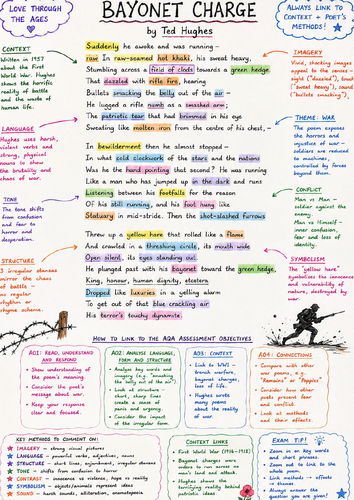 LOVE THROUGH
THE AGES
BAYONET CHARGE
by Ted Hughes
ALWAYS LINK TO
CONTEXT + POET'S
METHODS!
CONTEXT
Written in 1957
about the First
World War. Hughes
shows the horrific
reality of battle
and the waste of
human life.
LANGUAGE
Hughes uses harsh,
violent verbs and
strong, physical
nouns to show
the brutality and
chaos of war.
TONE
The tone shifts
from confusion
and fear to
horror and
desperation.
STRUCTURE
3 irregular stanzas
mirror the chaos
of battle –
no regular
rhythm or
rhyme scheme.
Suddenly he awoke and was running –
raw In raw-seamed hot khaki, his sweat heavy,
Stumbling across a field of clods towards a green hedge
That dazzled with rifle fire, hearing
Bullets smacking the belly out of the air –
He lugged a rifle numb as a smashed arm;
The patriotic tear that had brimmed in his eye
Sweating like molten iron from the centre of his chest, –
In bewilderment then he almost stopped –
In what cold clockwork of the stars and the nations
Was he the hand pointing that second? He was running
Like a man who has jumped up in the dark and runs
Listening between his footfalls for the reason
Of his still running, and his foot hung like
Statuary in mid-stride. Then the shot-slashed furrows
Threw up a yellow hare that rolled like a flame
And crawled in a threshing circle, its mouth wide
Open silent, its eyes standing out.
He plunged past with his bayonet toward the green hedge,
King, honour, human dignity, etcetera
Dropped like luxuries in a yelling alarm
To get out of that blue crackling air
His terror's touchy dynamite.
IMAGERY
Vivid, shocking images
appeal to the senses –
THEME: WAR
The poem exposes
the horrors and
injustice of war –
soldiers are reduced
to machines,
controlled by forces
beyond them.
CONFLICT
Man vs Man –
soldier against the
enemy.
Man vs Himself –
inner confusion,
fear and loss of
identity.
SYMBOLISM
The "yellow hare"
symbolises the innocence
and vulnerability of
nature, destroyed by
war.
HOW TO LINK TO THE AQA ASSESSMENT OBJECTIVES
AO1: READ, UNDERSTAND
AND RESPOND
Show understanding
of the poem's meaning.
Consider the poet's
message about war.
Keep your response
clear and focused.
AO2: ANALYSE LANGUAGE,
FORM and STRUCTURE
Analyse key words
and imagery
Look at structure –
short lines
create a sense of
panic and urgency.
Consider the impact
of the irregular form.
AO3: CONTEXT
Link to WWI –
trench warfare,
bayonet charges,
loss of life.
Hughes wrote
many poems
about the reality
of war.
AO4: CONNECTIONS
Compare with other
war poems, e.g.
"Remains" or "Poppies"
Consider how other
poets present fear
and conflict.
Look at methods
and their effects.
KEY METHODS TO COMMENT ON:
IMAGERY – strong visual pictures
LANGUAGE – powerful verbs, adjectives, nouns
STRUCTURE – short lines, enjambment, irregular stanzas
TONE – shifts from confusion to horror
CONTRAST – innocence vs violence, hope vs reality
SYMBOLISM – objects/animals represent ideas
SOUND – harsh sounds, alliteration, onomatopoeia
CONTEXT LINKS
First World War (1914-1918)
Bayonet charges were
orders to run across no
man's land and attack.
Hughes shows the
terrifying reality behind
patriotic ideas
EXAM TIP!
Zoom in on key words
and short phrases.
Zoom out to link to the
whole poem.
Link methods → effects →
themes
Always answer the
question you are given!